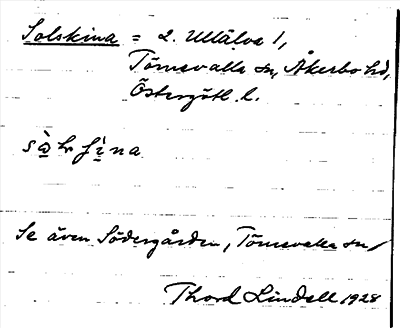 Solskina = 2. Ullälva 1,
Törnevalla sn, Åkerbo hd,
Östergötl. l.
sὰlʃìna
Se även Södergården, Törnevalla sn/
Thord Lindell 1928